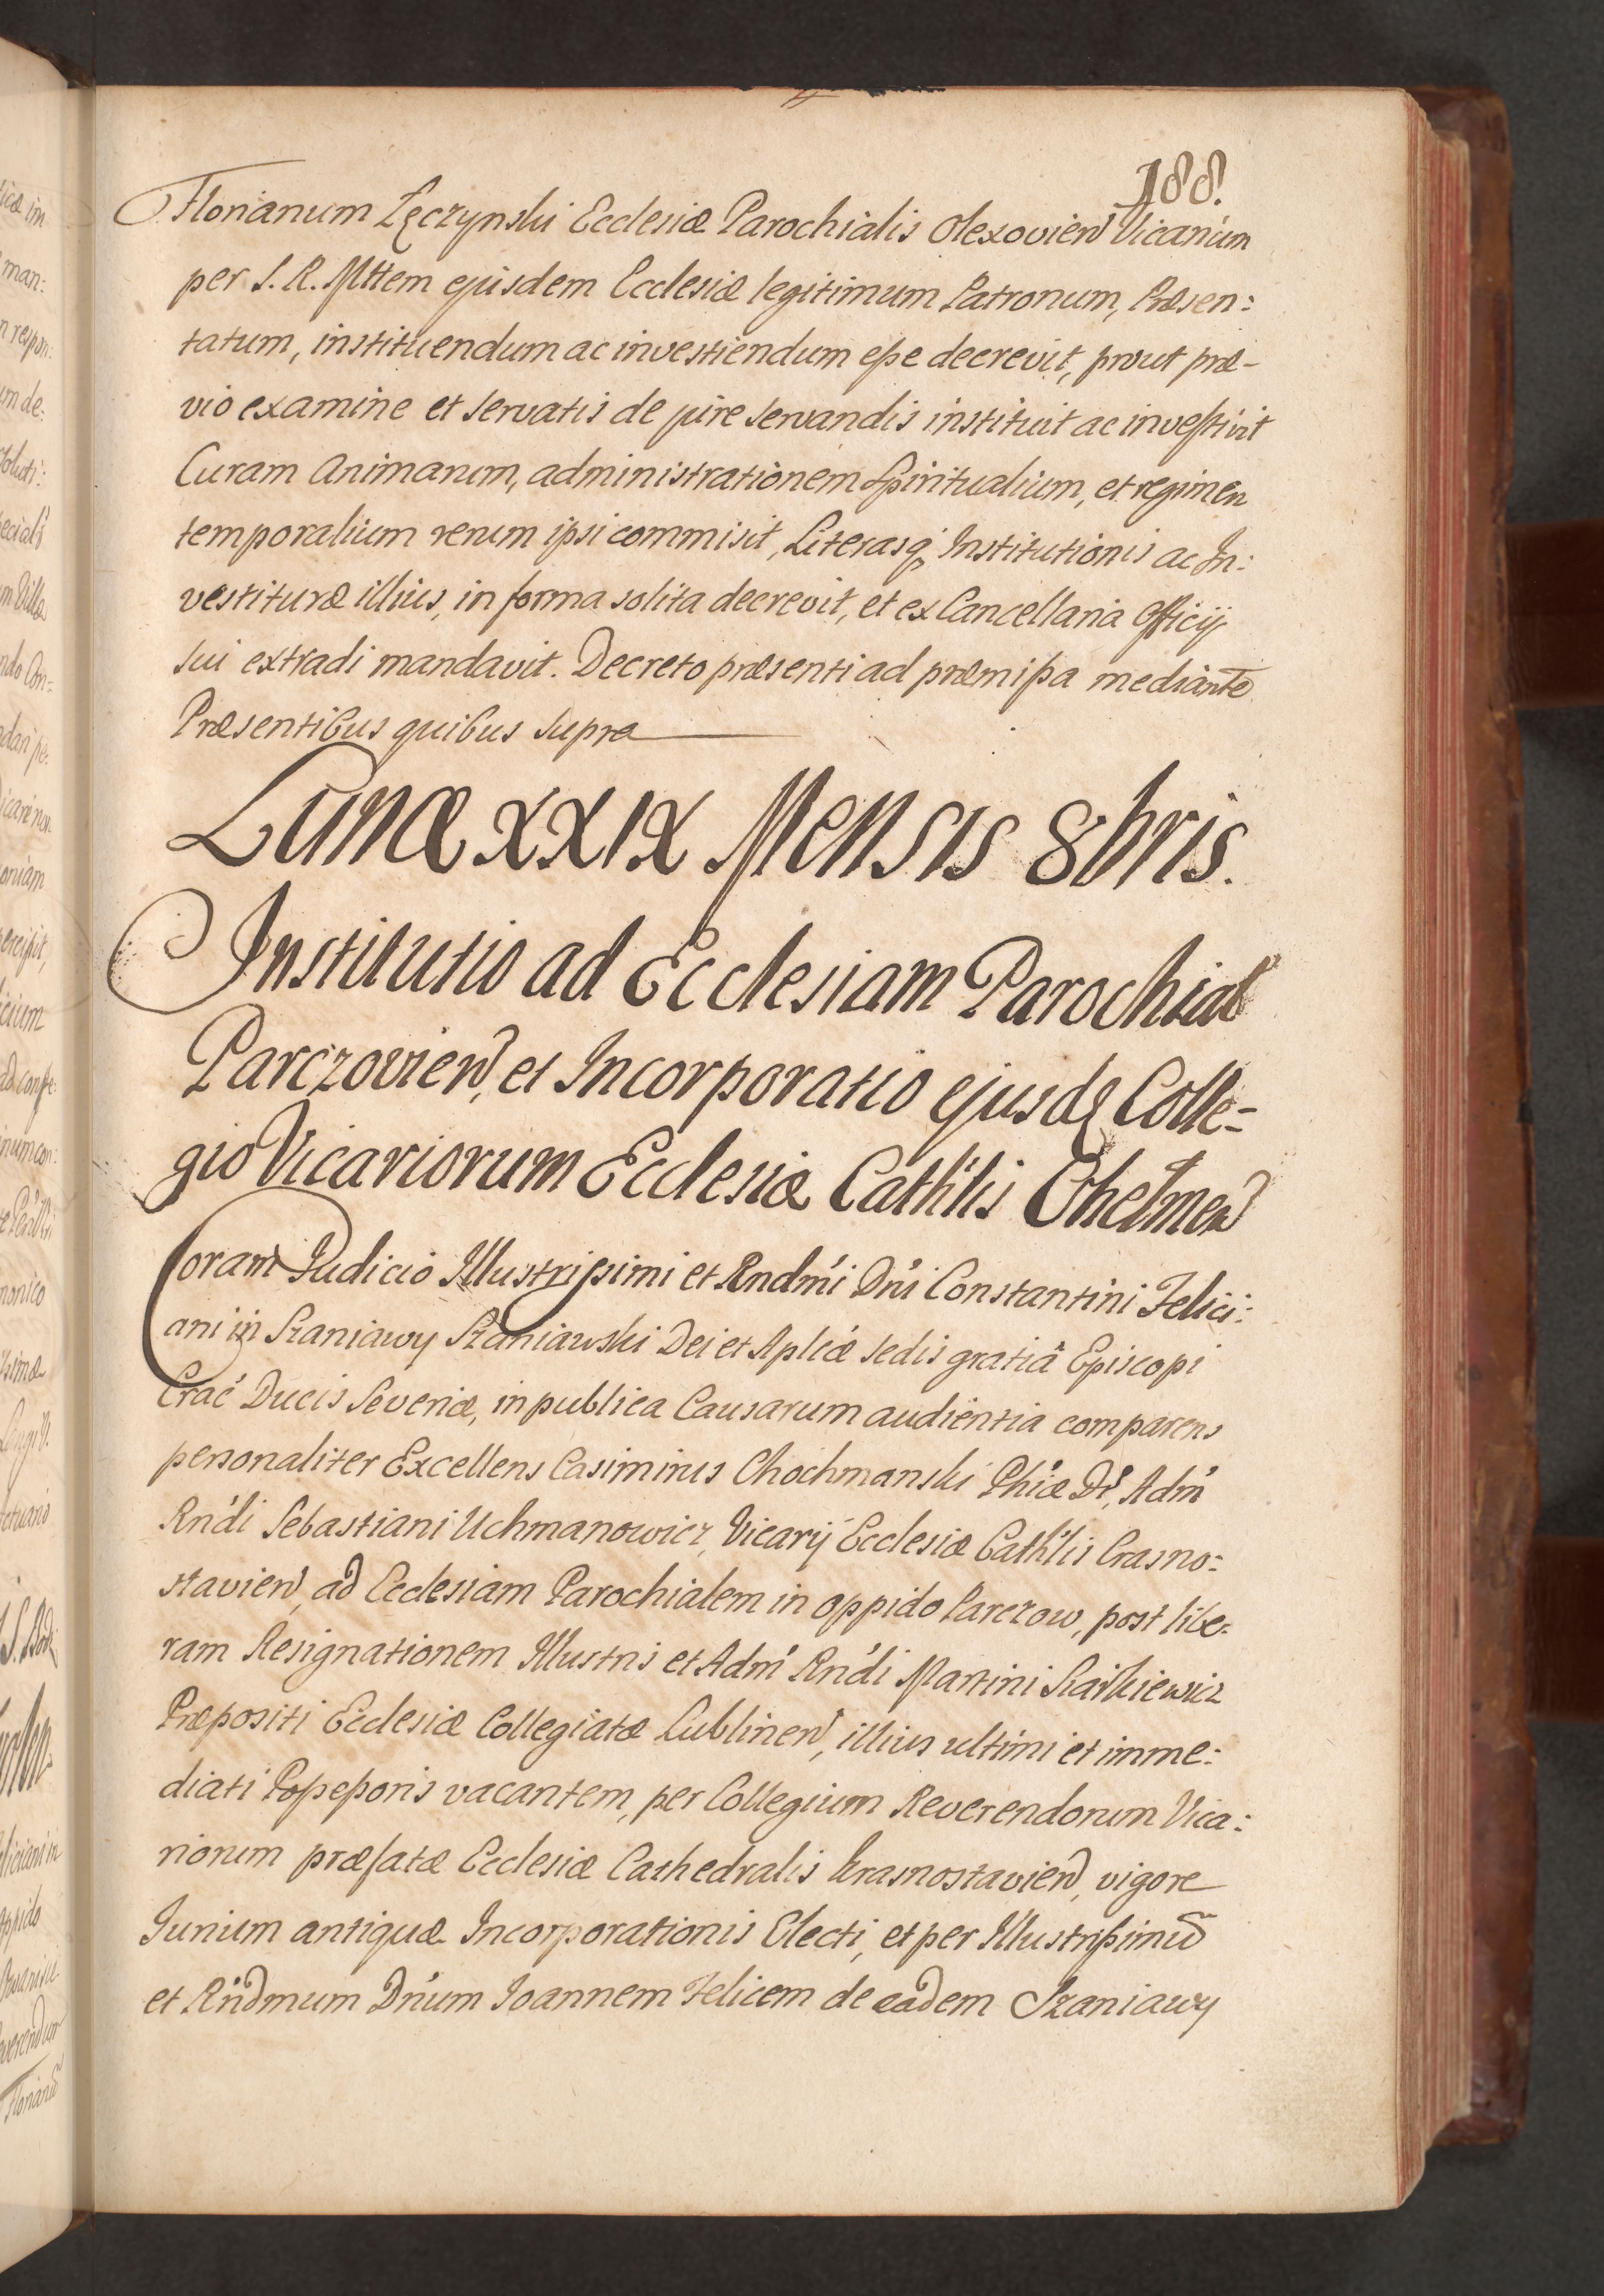 188.
Florianum Łęczynski Ecclesiæ Parochialis Olexovien Vicarium
per S. R. Mttem ejusdem Ecclesiæ legitimum Patronum, Præsen:
tatum, instituendum ac investiendum eſse decrevit, prout præ-
vio examine et servatis de jure servandis instituit ac investivit
Curam Animarum, administrationem Spiritualium, et regimen
temporalium rerum ipsi commisit, Literasq, Institutionis ac In:
vestituræ illius, in forma solita decrevit, et ex Cancellaria Officij
sui extradi mandavit. Decreto præsenti ad præmiſsa mediante
Præsentibus quibus supra
Lunæ XXIX Mensis 8bris.
Institutio ad Ecclesiam Parochial
Parczovien, et Incorporatio ejusdę Colle-
gio Vicariorum Ecclesiæ Cath'lis Chelmen
Coram Judicio Illustriſsimi et Rndm'i Dn'i Constantini Felici:
ani in Szaniawy Szaniawski Dei et Aplicæ sedis gratiâ Episcopi
Crac' Ducis Severiæ, in publica Causarum audientia comparens
personaliter Excellens Casimirus Chochmanski Phiæ Dr, Adm'
Rn'di Sebastiani Uchmanowicz, Vicarij Ecclesiæ Cath'lis Crasno:
stavien, ad Ecclesiam Parochialem in oppido Parczow, post libe-
ram Resignationem Illustris et Adm' Rn'di Martini
Præpositi Ecclesiæ Collegiatæ Lublinen, illius ultimi et imme:
diati Poſseſsoris vacantem, per Collegium Reverendorum Vica:
riorum præfatæ Ecclesiæ Cathedralis Krasnostavien, vigore
Iurium antiquæ Incorporationis Electi, et per Illustriſsimū
et Rn'dmum Dn'um Ioannem Felicem de eadem Szaniawy